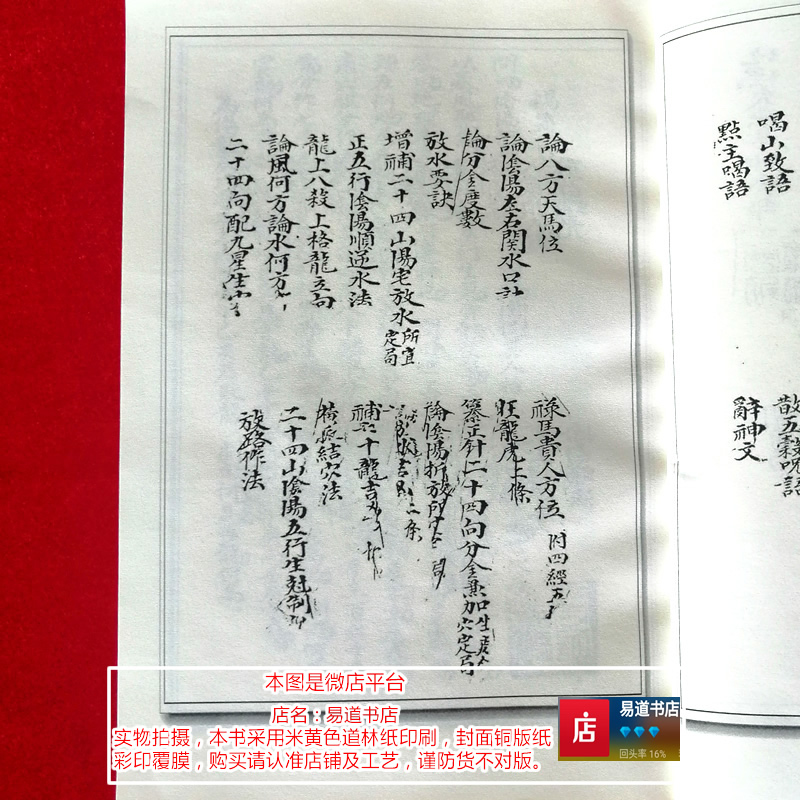 喝山致語
點主喝語
散五穀呪語
辭神文
論八方天馬位
論陰陽左右關水口
論分金度數
放水要訣
增補二十四山陽宅放水所宜定局
正五行陰陽順逆水法
龍上八殺上格龍立向
論風何方論水何方
二十四向配九星生
祿馬貴人方位 附四經五
旺龍虎上條
纂正針二十四向分金兼加
論陰陽折放所
補 十龍吉
結穴法
二十四山陰陽五行生剋制
放路作法
本图是微店平台
店名：易道书店
实物拍摄，本书采用米黄色道林纸印刷，封面铜版纸
彩印覆膜，购买请认准店铺及工艺，谨防货不对版。
店
易道书店
回头率 16%